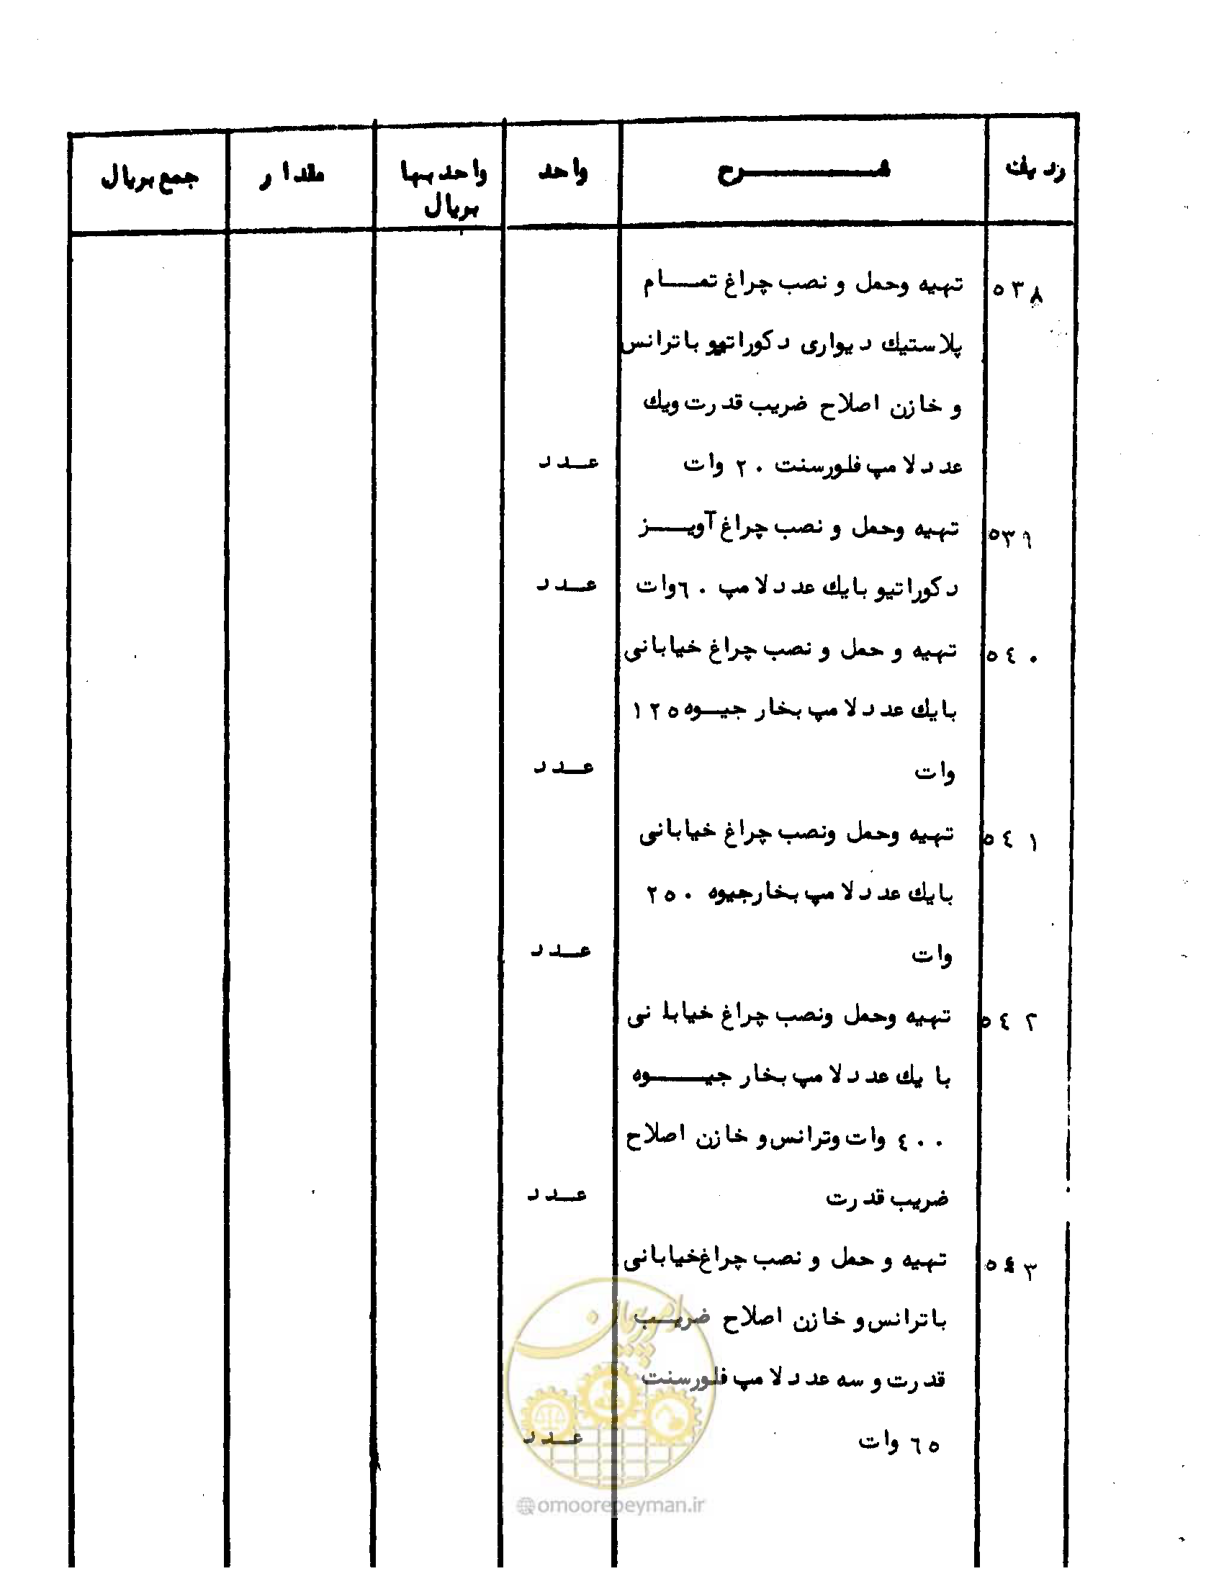 ردیف شرح واحد واحد بها بریال مقدار جمع بریال
٥٣٨ تهیه وحمل و نصب چراغ تمام
پلاستیك دیواری دکوراتیو باترانس
و خازن اصلاح ضریب قدرت ویك
عدد لامپ فلورسنت ٢٠ وات عدد
٥٣٩ تهیه وحمل و نصب چراغ آویز
دکوراتیو بایك عدد لامپ ٦٠ وات عدد
٥٤٠ تهیه و حمل و نصب چراغ خیابانی
بایك عدد لامپ بخار جیوه ١٢٥
وات عدد
٥٤١ تهیه وحمل ونصب چراغ خیابانی
بایك عدد لامپ بخارجیوه ٢٥٠
وات عدد
٥٤٢ تهیه وحمل ونصب چراغ خیابانی
با یك عدد لامپ بخار جیوه
٤٠٠ وات وترانس و خازن اصلاح
ضریب قدرت عدد
٥٤٣ تهیه و حمل و نصب چراغ خیابانی
باترانس و خازن اصلاح ضریب
قدرت و سه عدد لامپ فلورسنت
٦٥ وات عدد
امور پیمان
@omoorepeyman.ir